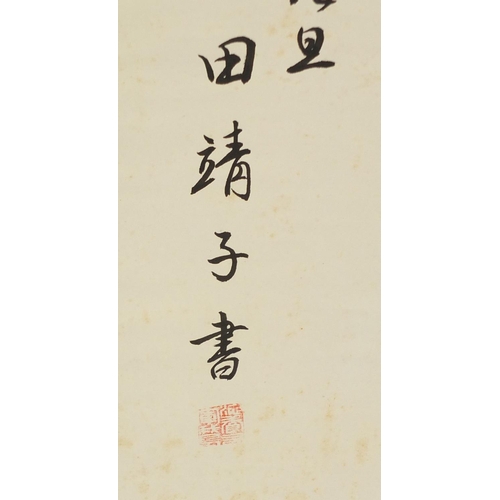 旦
田靖子書